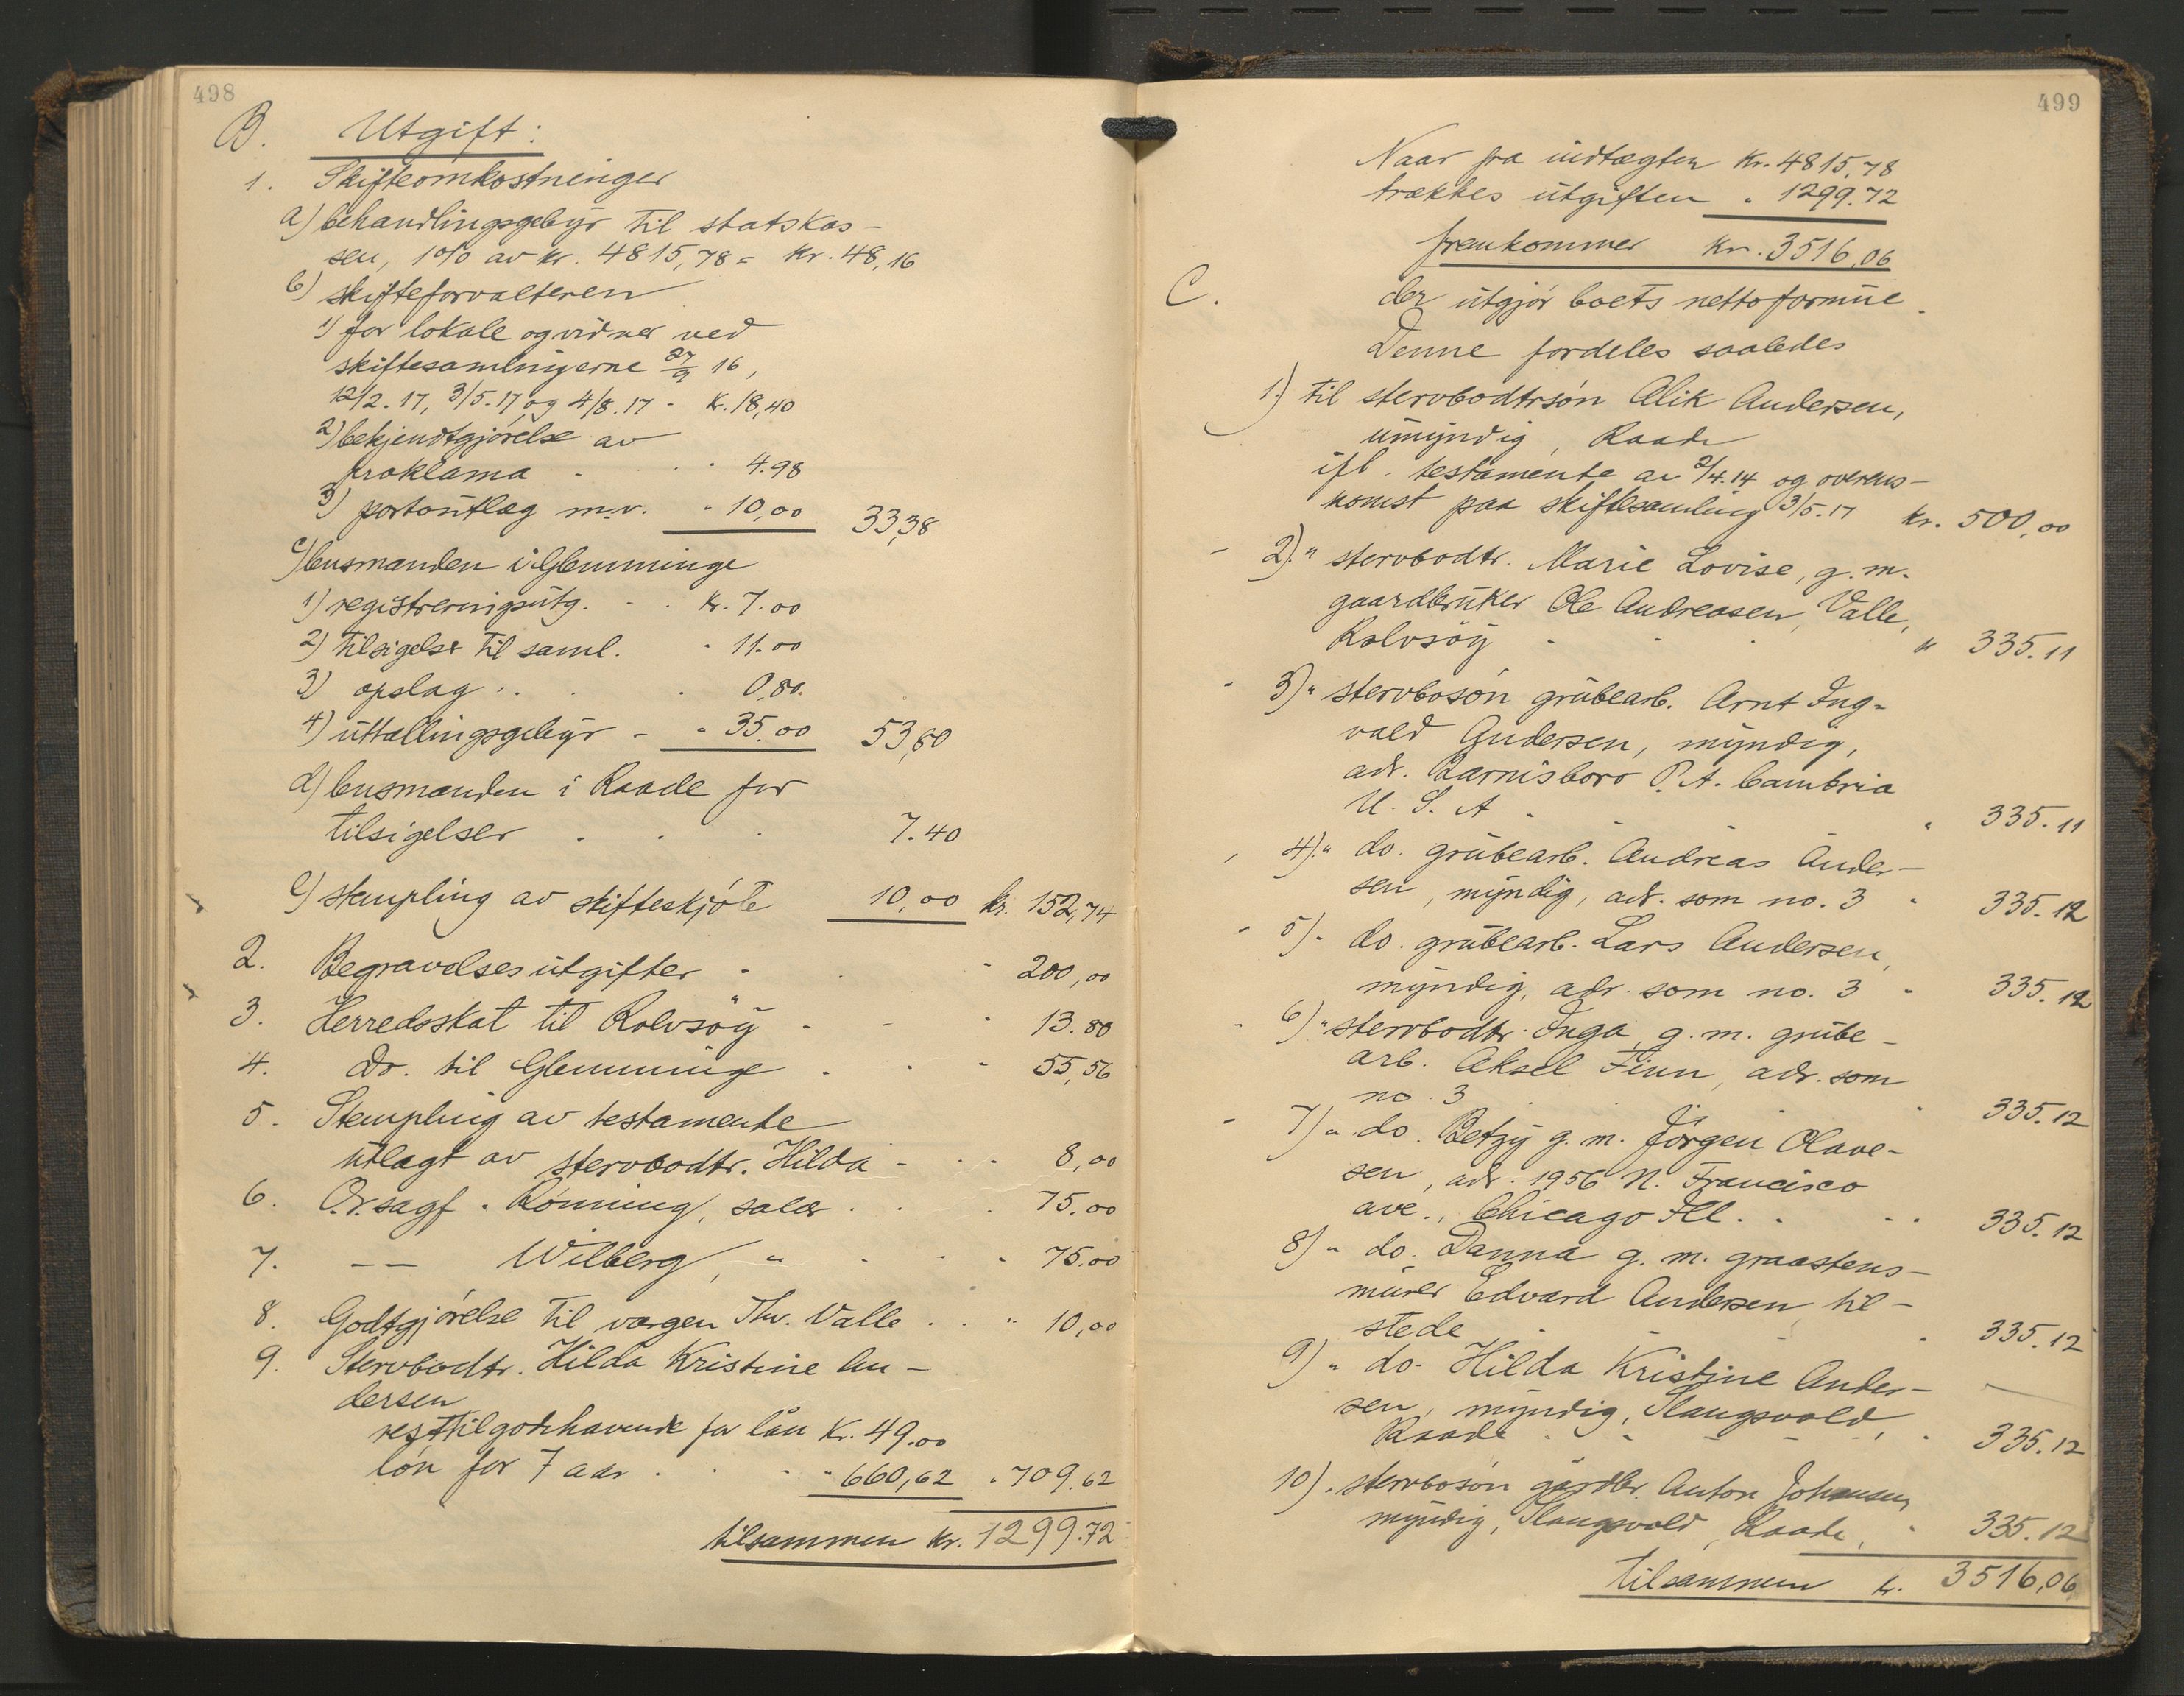 498
B. Utgift:
1. Skifteomkostninger
a) behandlingsgebyr til statskas-
sen, 1% av kr. 4815,78 = kr. 48,16
b) skifteforvalteren
1) for lokale og vidner ved
skiftesamlingerne 27/9 16,
12/2. 17, 3/5. 17 og 4/8. 17 - kr. 18,40
2) bekjendtgjørelse av
proklama - . . 4.98
3) portoutlæg m.v. " 10,00 33,38
c) lensmanden i Glemminge
1) registreringsutg. - . kr. 7.00
2) tilsigelse til saml. . 11.00
3) opslag . . . . 0,80.
4) uttællingsgebyr - " 35.00 53,80
d) lensmanden i Raade for
tilsigelser . . . 7.40
e) stempling av skifteskjøte 10,00 kr. 152,74
2. Begravelsesutgifter - . - 200,00
3. Herredsskat til Rolvsøy - - " 13.80
4. do. til Glemminge . . - 55,56
5. Stempling av testamente
utlagt av stervbodtr. Hilda - . . 8,00
6. O.r.sagf. Rönning, salær . . . 75.00
7. -- Wilberg, " . . . 75.00
8. Godtgjørelse til værgen Thv. Valle . . " 10,00
9. Stervbodtr. Hilda Kristine An-
dersen
resttilgodehavende for lån kr. 49.00
løn for 7 aar . . - " 660,62 " 709.62
tilsammen kr. 1299.72
499
Naar fra indtægten kr. 4815,78
trækkes utgiften " 1299.72
fremkommer kr. 3516,06
C. der utgjør boets nettoformue.
Denne fordeles saaledes
1.) til stervbodtrsøn Alik Andersen,
umyndig, Raade
ifl. testamente av 2/4.14 og overens-
komst paa skiftesamling 3/5.17 kr. 500,00
2). " stervbodtr. Marie Lovise, g.m.
gaardbruker Ole Andreasen, Valle,
Rolvsøy . . " 335.11
3) " stervbosøn grubearb. Arnt Ing-
vald Andersen, myndig,
adr. Barnisboro P.A. Cambria
U.S.A . . " 335.11
4). " do. grubearb. Andreas Ander-
sen, myndig, adr. som no. 3 " 335.12
5) " do. grubearb. Lars Andersen,
myndig, adr. som no. 3 - 335.12
6) " stervbodtr. Inga, g.m. grube-
arb. Aksel Finn, adr. som
no. 3 . . . 335.12
7) " do. Betzy g.m. Jörgen Olave-
sen, adr. 1956 N. Francisco
ave., Chicago Ill. . . . 335.12
8) " do. Danna g.m. graastens-
murer Edvard Andersen, til-
stede . . . 335.12
9) " do. Hilda Kristine Ander-
sen, myndig, Slangsvold,
Raade . . . . 335.12
10) " stervbosøn gårdbr. Anton Johansen,
myndig, Slangsvold, Raade, " 335.12
tilsammen kr. 3516,06